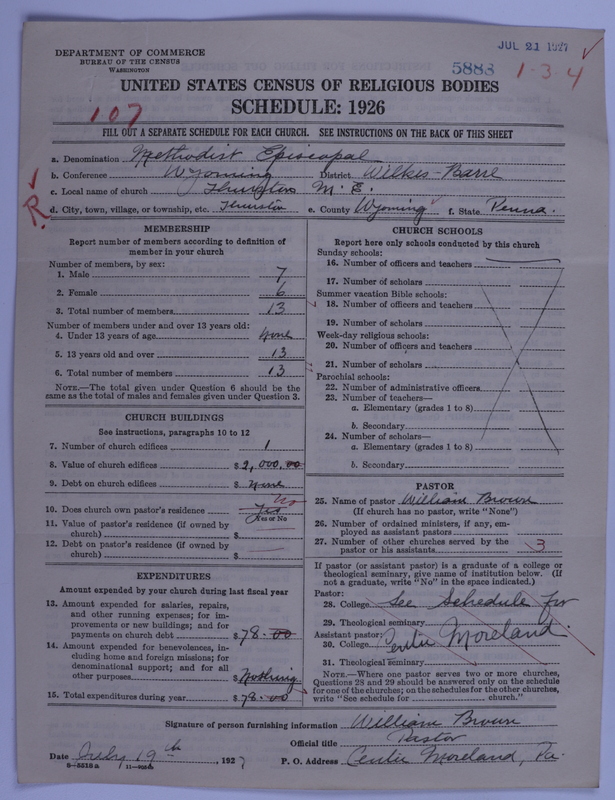 JUL 21 1927
DEPARTMENT OF COMMERCE
BUREAU OF THE CENSUS
WASHINGTON
5883 1-3-4
UNITED STATES CENSUS OF RELIGIOUS BODIES
SCHEDULE: 1926
107
FILL OUT A SEPARATE SCHEDULE FOR EACH CHURCH. SEE INSTRUCTIONS ON THE BACK OF THIS SHEET
a. Denomination Methodist Episcopal
b. Conference Wyoming District Wilkes-Barre
c. Local name of church Thurston M. E.
R. d. City, town, village, or township, etc. Thurston e. County Wyoming f. State Penna.
MEMBERSHIP
Report number of members according to definition of
member in your church
Number of members, by sex:
1. Male 7
2. Female 6
3. Total number of members 13
Number of members under and over 13 years old:
4. Under 13 years of age none
5. 13 years old and over 13
6. Total number of members 13
NOTE.—The total given under Question 6 should be the
same as the total of males and females given under Question 3.
CHURCH BUILDINGS
See instructions, paragraphs 10 to 12
7. Number of church edifices 1
8. Value of church edifices $ 2,000.00
9. Debt on church edifices $ None
No
10. Does church own pastor's residence? Yes
Yes or No
11. Value of pastor's residence (if owned by
church) $
12. Debt on pastor's residence (if owned by
church) $
EXPENDITURES
Amount expended by your church during last fiscal year
13. Amount expended for salaries, repairs,
and other running expenses; for im-
provements or new buildings; and for
payments on church debt $ 78.00
14. Amount expended for benevolences, in-
cluding home and foreign missions; for
denominational support; and for all
other purposes $ Nothing
15. Total expenditures during year $ 78.00
CHURCH SCHOOLS
Report here only schools conducted by this church
Sunday schools:
16. Number of officers and teachers
17. Number of scholars
Summer vacation Bible schools:
18. Number of officers and teachers
19. Number of scholars
Week-day religious schools:
20. Number of officers and teachers
21. Number of scholars
Parochial schools:
22. Number of administrative officers
23. Number of teachers—
a. Elementary (grades 1 to 8)
b. Secondary
24. Number of scholars—
a. Elementary (grades 1 to 8)
b. Secondary
PASTOR
25. Name of pastor William Brown
(If church has no pastor, write "None")
26. Number of ordained ministers, if any, em-
ployed as assistant pastors
27. Number of other churches served by the
pastor or his assistants 3
If pastor (or assistant pastor) is a graduate of a college or
theological seminary, give name of institution below. (If
not a graduate, write "No" in the space indicated.)
Pastor:
28. College See Schedule for
29. Theological seminary
Assistant pastor: Centre Moreland.
30. College
31. Theological seminary
NOTE.—Where one pastor serves two or more churches,
Questions 28 and 29 should be answered only on the schedule
for one of the churches; on the schedules for the other churches,
write "See schedule for church."
Signature of person furnishing information William Brown
Official title Pastor
Date July 19th, 1927 P. O. Address Centre Moreland, Pa.
8-5518a 11-9054